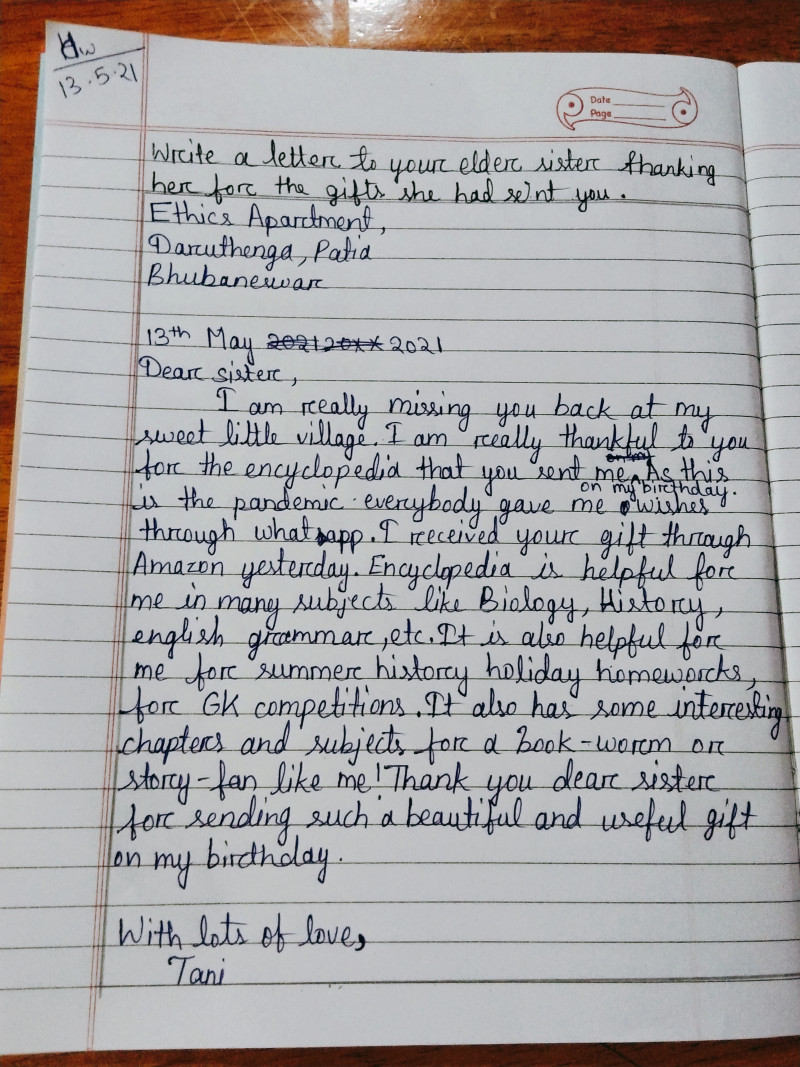 HW
13.5.21
Date
Page
Write a letter to your elder sister thanking
her for the gifts she had sent you.
Ethics Apartment,
Daruthenga, Patia
Bhubaneswar
13th May 2021 20xx 2021
Dear sister,
I am really missing you back at my
sweet little village. I am really thankful to you
for the encyclopedia that you sent me. As this
on my birthday.
is the pandemic everybody gave me wishes
through whatsapp. I received your gift through
Amazon yesterday. Encyclopedia is helpful for
me in many subjects like Biology, History,
english grammar, etc. It is also helpful for
me for summer history holiday homeworks,
for GK competitions. It also has some interesting
chapters and subjects for a book-worm or
story-fan like me! Thank you dear sister
for sending such a beautiful and useful gift
on my birthday.
With lots of love,
Tani